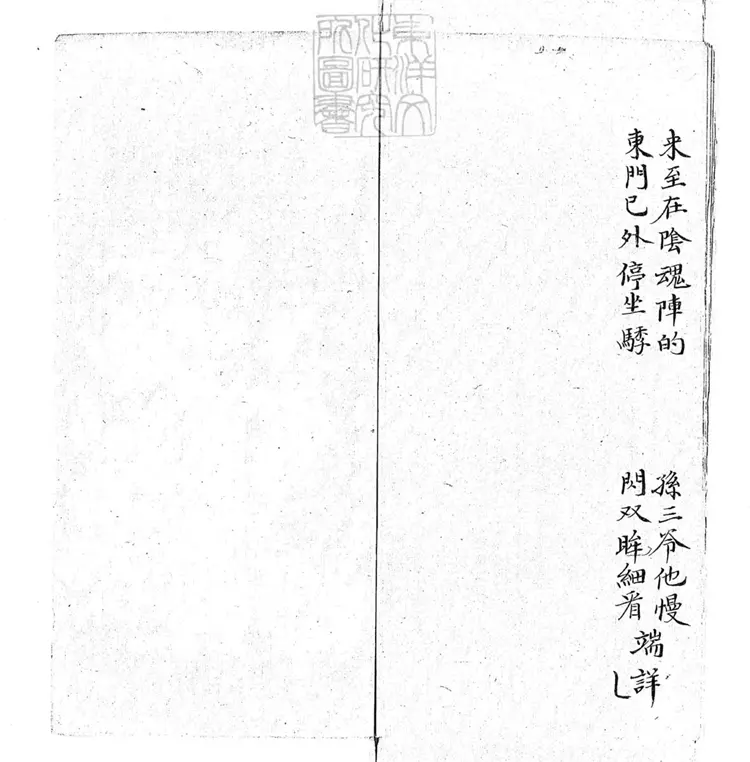 来至在陰魂陣的
東門已外停坐騎
孫三爷他慢
閃双眸細看端詳
東洋文
化研究
所圖書